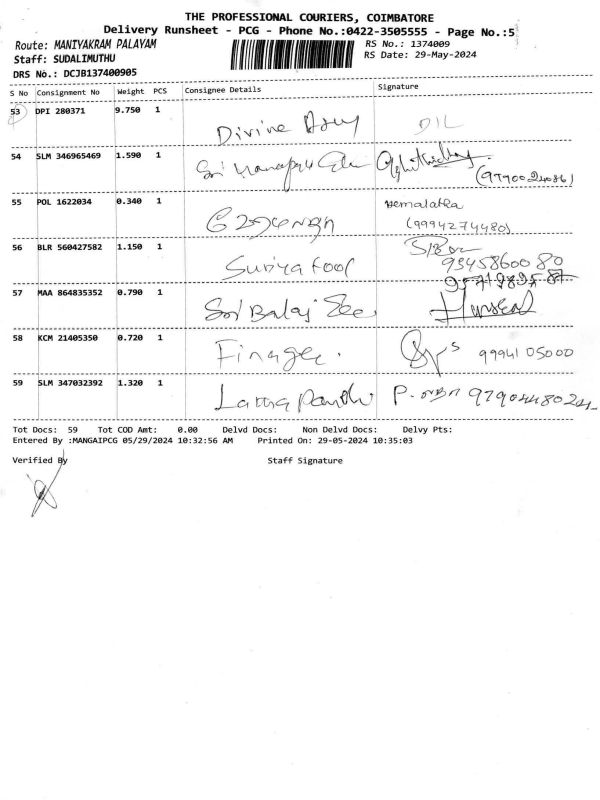 THE PROFESSIONAL COURIERS, COIMBATORE
Delivery Runsheet - PCG - Phone No.:0422-3505555 - Page No.:5
Route: MANIYAKRAM PALAYAM RS No.: 1374009
Staff: SUDALIMUTHU RS Date: 29-May-2024
DRS No.: DCJB137400905
S No Consignment No Weight PCS Consignee Details Signature
53 DPI 280371 9.750 1 Divine DIL
54 SLM 346965469 1.590 1 Sri
(9790024086)
55 POL 1622034 0.340 1 Hemalatha
(9994274480)
56 BLR 560427582 1.150 1 Suriya Fool
9345860080
57 MAA 864835352 0.790 1 Sri Balaj
58 KCM 21405350 0.720 1 99941 05000
59 SLM 347032392 1.320 1 Latha P.
Tot Docs: 59 Tot COD Amt: 0.00 Delvd Docs: Non Delvd Docs: Delvy Pts:
Entered By :MANGAIPCG 05/29/2024 10:32:56 AM Printed On: 29-05-2024 10:35:03
Verified By Staff Signature